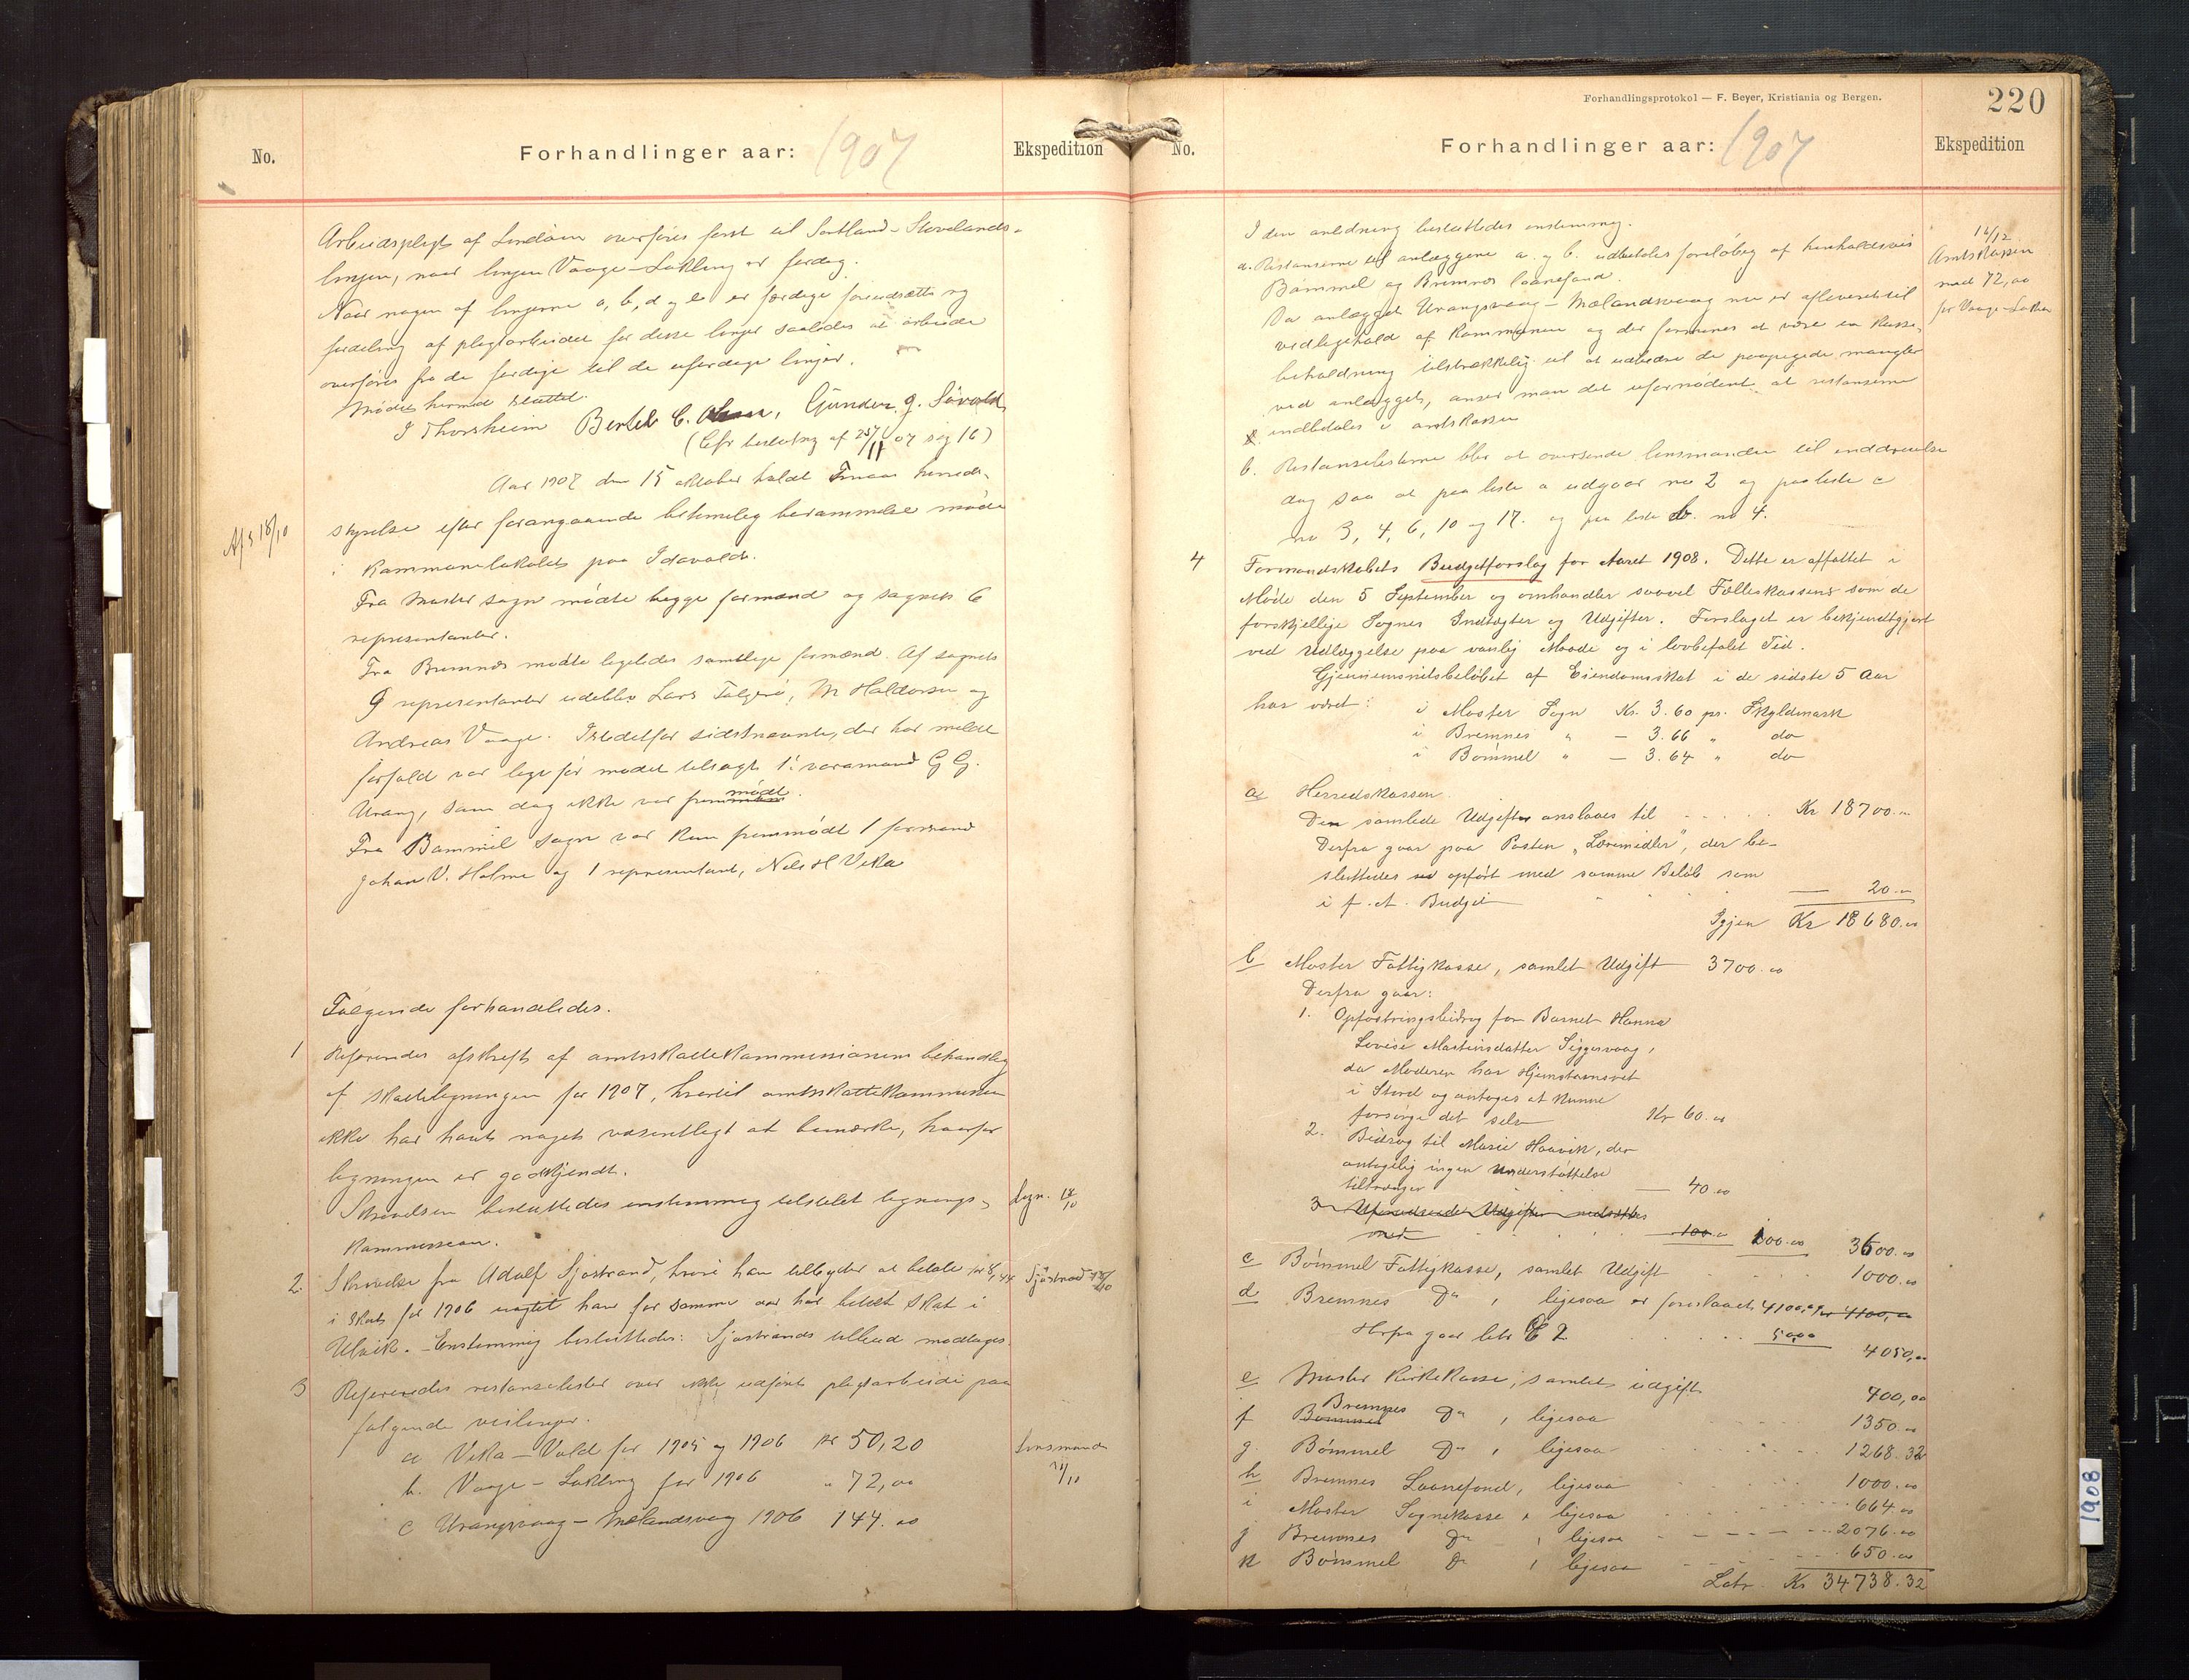 No.
Forhandlinger aar: 1907
Ekspedition
Arbeidspligt af overføres først til Sortland-Stovelands-
linjen, naar linjen Vaage-Løkling er ferdig.
Naar nogen af linjerne a, b, d og e er færdige foreudsættes ny
fordeling af pligtarbeidet for disse linjer saaledes at arbeide
overføres fra de ferdige til de uferdige linjer.
Mødet hermed sluttet.
J Thorsheim Bertel C. Gunder. J. Sövold
(Cfr beslutng af 25/11 07 sag 16)
Aar 1907 den 15 oktober holdt Finaas herreds-
Afs 18/10
styrelse efter forangaaende betimelig berammelse møde
i kommunelokalet paa Idavold.
Fra Moster sogn mødte begge formænd og sognets 6
representanter.
Fra Bremnes mødte ligeledes samtlige formænd. Af sognets
9 representanter udeblev Lars Folgerø, M Haldorsen og
Andreas Vaage. Istedetfor sidstnævnte, der har meldt
forfald var lige før mødet tilsagt 1ste varamand G G.
Urang, som dog ikke var fremmødt.
Fra Bømmel sogn var kun fremmødt 1 formand
Johan V. Holme og 1 representant, Nils H Vika
Følgende forhandledes.
1 Refereredes afskrift af amtsskattekommissionens behandling
af skattelegningen for 1907, hvortil amtsskattekommissionen
ikke har havt noget væsentligt at bemærke, hvorfor
ligningen er godkjendt.
Skrivelsen besluttedes enstemmig tilstillet lignings-
Lign. 18/10
kommissionen.
2. Skrivelse fra Adolf Sjøstrand, hvori han tilbyder at betale kr 8,44
Sjøstrand 18/10
i skat for 1906 uagtet han for samme aar har betalt skat i
Ulvik. - Enstemmig besluttedes: Sjøstrands tilbud modtages.
3 Refereredes restanselister over ikke udført pligtarbeide paa
følgende veilinjer.
a Vika - Vold for 1905 og 1906 kr 50,20
Lensmand
b. Vaage - Løkling for 1906 " 72,00
c Urangsvaag - Mælandsvaag 1906 144.00
Forhandlingsprotokol — F. Beyer, Kristiania og Bergen.
220
No.
Forhandlinger aar: 1907
Ekspedition
I den anledning besluttedes enstemmig.
a. Restanserne til anlæggene a. og b. udbetales foreløbig af henholdsvis
Bømmel og Bremnes laanefond.
14/12
Amtskassen
med 72,00
for Vaage-Løkling
Da anlægget Urangsvaag - Mælandsvaag nu er afleveret til
vedligehold af kommunen og der formenes at være en kasse-
beholdning tilstrækkelig til at udbedre de paapegede mangler
ved anlægget, anser man det ufornødent at restanserne
indbetales i amtskassen
b. Restanselisterne blir at oversende lensmanden til inddrivelse
dog saa at paa liste a udgaar no 2 og paa liste c
no 3, 4, 6, 10 og 17. og paa liste b. no 4.
4 Formandskabets Budgetforslag for Aaret 1908. Dette er affattet i
Møde den 5 September og omhandler saavel Fælleskassens som de
forskjellige Sognes Indtægter og Udgifter. Forslaget er bekjendtgjort
ved Udlæggelse paa vanlig Maade og i lovbefalet Tid.
Gjennemsnitsbeløbet af Eiendomsskat i de sidste 5 Aar
har været: i Moster Sogn Kr. 3.60 pr. Skyldmark
i Bremnes " — 3.66 " do
i Bømmel " — 3.64 " do
a, Herredskassen.
Den samlede Udgifter anslaaes til Kr 18700.00
Derfra gaar paa Posten „Læremidler", der be-
sluttedes opført med samme Beløb som
i f. A. Budget — 20.00
Igjen Kr 18680.00
b Moster Fattigkasse, samlet Udgift 3700.00
Derfra gaar:
1. Opfostringsbidrag for Barnet Hanna
Lovise Martinsdatter Siggesvaag,
da Moderen har Hjemstamsret
i Stord og antages at kunne
forsørge det selv Kr 60.00
2. Bidrag til Marie Haavik, der
antagelig ingen Understøttelse
tiltrænger — 40.00
3 Uforudseede Udgifter nedsættes
med 100.00 100.00 3600.00
c Bømmel Fattigkasse, samlet Udgift 1000.00
d Bremnes Do, ligesaa er foreslaaet 4100,00 kr 4100,00
Herfra gaar 50,00
4050,00
e Moster Kirkekasse, samlet udgift 400,00
f Bømmel Bremnes Do, ligesaa 1350.00
g. Bømmel Do, ligesaa 1268.32
h Bremnes Laanefond, ligesaa 1000.00
i Moster Sognekasse, ligesaa 664.00
j Bremnes Do, ligesaa 2076.00
k Bømmel Do, ligesaa 650.00
Latr. Kr 34738.32
1908